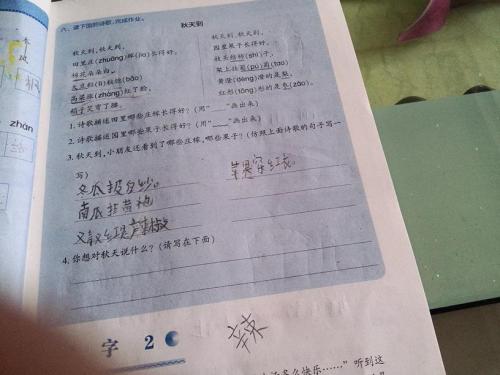 六、读下面的诗歌，完成作业。
秋天到
秋天到，秋天到，
田里庄(zhuāng)稼(jia)长得好。
棉花朵朵白，
大豆粒(lì)粒饱(bǎo)
高粱涨(zhàng)红了脸，
稻子笑弯了腰。
秋天到，秋天到，
园里果子长得好。
枝头结柿(shì)子，
架上挂葡(pú)萄(tao)
黄澄(dēng)澄的是梨，
红彤(tóng)彤的是枣(zǎo)。
1. 诗歌描述田里哪些庄稼长得好？(用"____"画出来)
2. 诗歌描述园里哪些果子长得好？(用"____"画出来)
3. 秋天到，小朋友还看到了哪些庄稼，哪些果子？(仿照上面诗歌的句子写一
写)
冬瓜披白纱。
南瓜挂黄袍
苹果穿红衣
4. 你想对秋天说什么？(请写在下面)
字 2
辣
多么快乐……"听到这
zhán